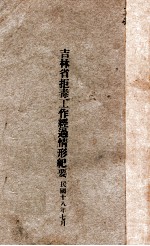 吉林省拒毒工作經過情形紀要 民國十八年七月